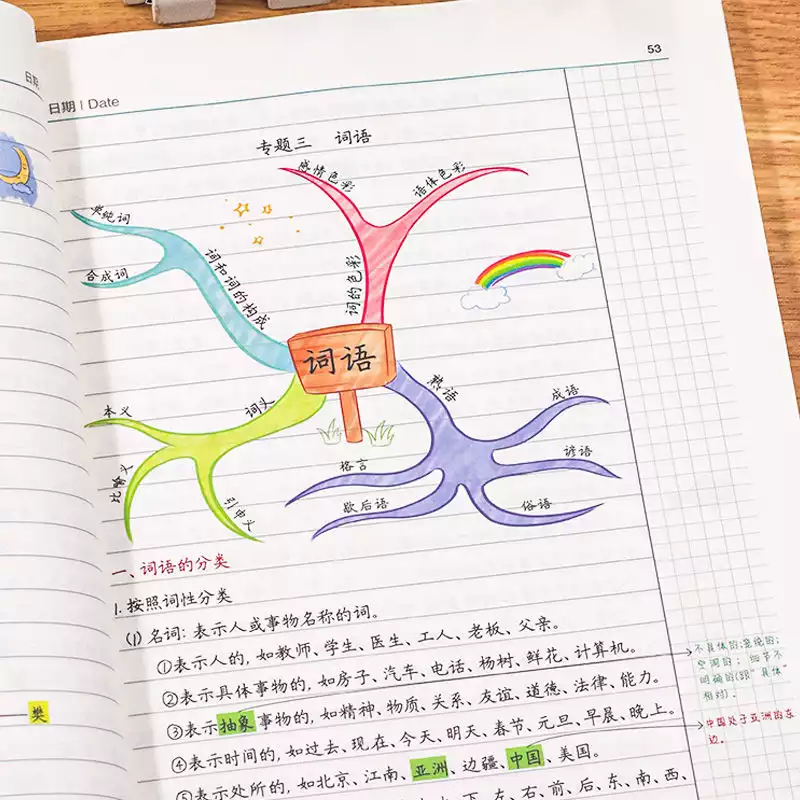 日期
53
日期 | Date
专题三 词语
感情色彩
语体色彩
词的色彩
单纯词
合成词
词和词的构成
词语
本义
比喻义
引申义
词义
熟语
成语
谚语
俗语
格言
歇后语
一、词语的分类
1. 按照词性分类
(1) 名词：表示人或事物名称的词。
①表示人的，如教师、学生、医生、工人、老板、父亲。
②表示具体事物的，如房子、汽车、电话、杨树、鲜花、计算机。
③表示抽象事物的，如精神、物质、关系、友谊、道德、法律、能力。
④表示时间的，如过去、现在、今天、明天、春节、元旦、早晨、晚上。
⑤表示处所的，如北京、江南、亚洲、边疆、中国、美国。
下、左、右、前、后、东、南、西、
不具体的；笼统的；
空洞的；细节不
明确的(跟"具体"
相对)。
中国处于亚洲的东
边。
樊